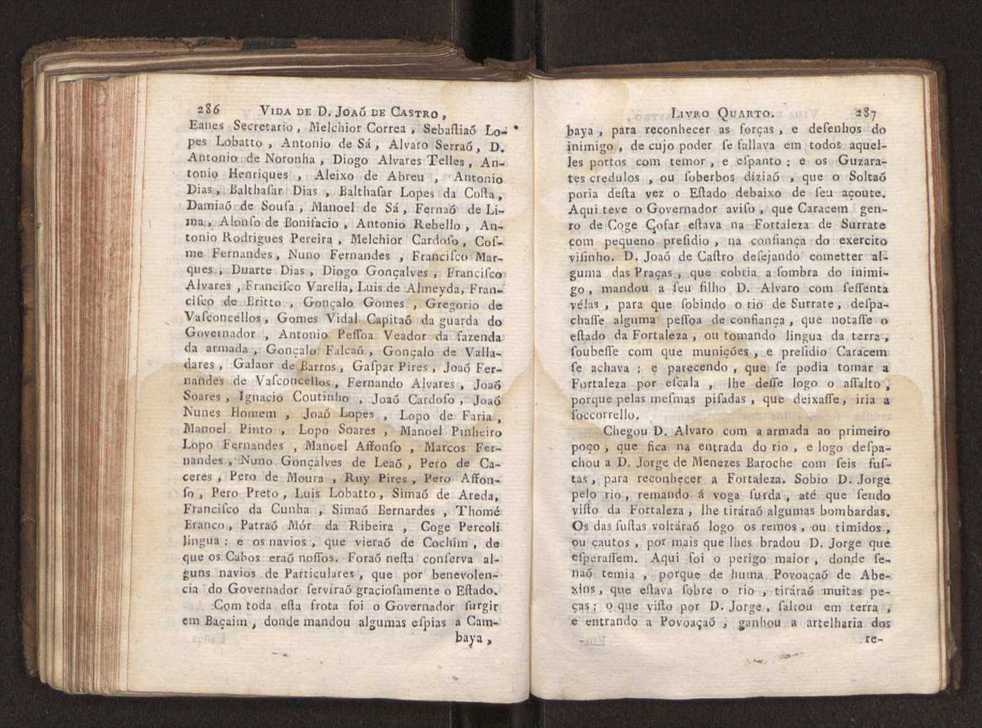 286 VIDA DE D. JOAÕ DE CASTRO,
Eanes Secretario, Melchior Correa, Sebaſtiaõ Lo-
pes Lobatto, Antonio de Sá, Alvaro Serraõ, D.
Antonio de Noronha, Diogo Alvares Telles, An-
tonio Henriques, Aleixo de Abreu, Antonio
Dias, Balthaſar Dias, Balthaſar Lopes da Coſta,
Damiaõ de Souſa, Manoel de Sá, Fernaõ de Li-
ma, Alonſo de Bonifacio, Antonio Rebello, An-
tonio Rodrigues Pereira, Melchior Cardoſo, Coſ-
me Fernandes, Nuno Fernandes, Franciſco Mar-
ques, Duarte Dias, Diogo Gonçalves, Franciſco
Alvares, Franciſco Varella, Luis de Almeyda, Fran-
ciſco de Britto, Gonçalo Gomes, Gregorio de
Vaſconcellos, Gomes Vidal Capitaõ da guarda do
Governador, Antonio Peſſoa Veador da fazenda
da armada, Gonçalo Falcaõ, Gonçalo de Valla-
dares, Galaor de Barros, Gaſpar Pires, Joaõ Fer-
nandes de Vaſconcellos, Fernando Alvares, Joaõ
Soares, Ignacio Coutinho, Joaõ Cardoſo, Joaõ
Nunes Homem, Joaõ Lopes, Lopo de Faria,
Manoel Pinto, Lopo Soares, Manoel Pinheiro
Lopo Fernandes, Manoel Affonſo, Marcos Fer-
nandes, Nuno Gonçalves de Leaõ, Pero de Ca-
ceres, Pero de Moura, Ruy Pires, Pero Affon-
ſo, Pero Preto, Luis Lobatto, Simaõ de Areda,
Franciſco da Cunha, Simaõ Bernardes, Thomé
Branco, Patraõ Mór da Ribeira, Coge Percoli
lingua; e os navios, que vieraõ de Cochim, de
que os Cabos eraõ noſſos. Foraõ neſta conſerva al-
guns navios de Particulares, que por benevolen-
cia do Governador ſerviraõ gracioſamente o Eſtado.
Com toda eſta frota foi o Governador ſurgir
em Baçaim, donde mandou algumas eſpias a Cam-
baya,
LIVRO QUARTO. 287
baya, para reconhecer as forças, e deſenhos do
inimigo, de cujo poder ſe fallava em todos aquel-
les portos com temor, e eſpanto; e os Guzara-
tes credulos, ou ſoberbos diziaõ, que o Soltaõ
poria deſta vez o Eſtado debaixo de ſeu açoute.
Aqui teve o Governador aviſo, que Caracem gen-
ro de Coge Çofar eſtava na Fortaleza de Surrate
com pequeno preſidio, na confiança do exercito
viſinho. D. Joaõ de Caſtro deſejando cometter al-
guma das Praças, que cobria a ſombra do inimi-
go, mandou a ſeu filho D. Alvaro com ſeſſenta
vélas, para que ſobindo o rio de Surrate, deſpa-
chaſſe alguma peſſoa de confiança, que notaſſe o
eſtado da Fortaleza, ou tomando lingua da terra,
ſoubeſſe com que munições, e preſidio Caracem
ſe achava; e parecendo, que ſe podia tomar a
Fortaleza por eſcala, lhe deſſe logo o aſſalto,
porque pelas meſmas piſadas, que deixaſſe, iria a
ſoccorrello.
Chegou D. Alvaro com a armada ao primeiro
poço, que fica na entrada do rio, e logo deſpa-
chou a D. Jorge de Menezes Baroche com ſeis fuſ-
tas, para reconhecer a Fortaleza. Sobio D. Jorge
pelo rio, remando á voga ſurda, até que ſendo
viſto da Fortaleza, lhe tiráraõ algumas bombardas.
Os das fuſtas voltáraõ logo os remos, ou timidos,
ou cautos, por mais que lhes bradou D. Jorge que
eſperaſſem. Aqui foi o perigo maior, donde ſe-
naõ temia, porque de huma Povoaçaõ de Abe-
xins, que eſtava ſobre o rio, tiráraõ muitas pe-
ças; o que viſto por D. Jorge, ſaltou em terra,
e entrando a Povoaçaõ, ganhou a artelharia dos
re-